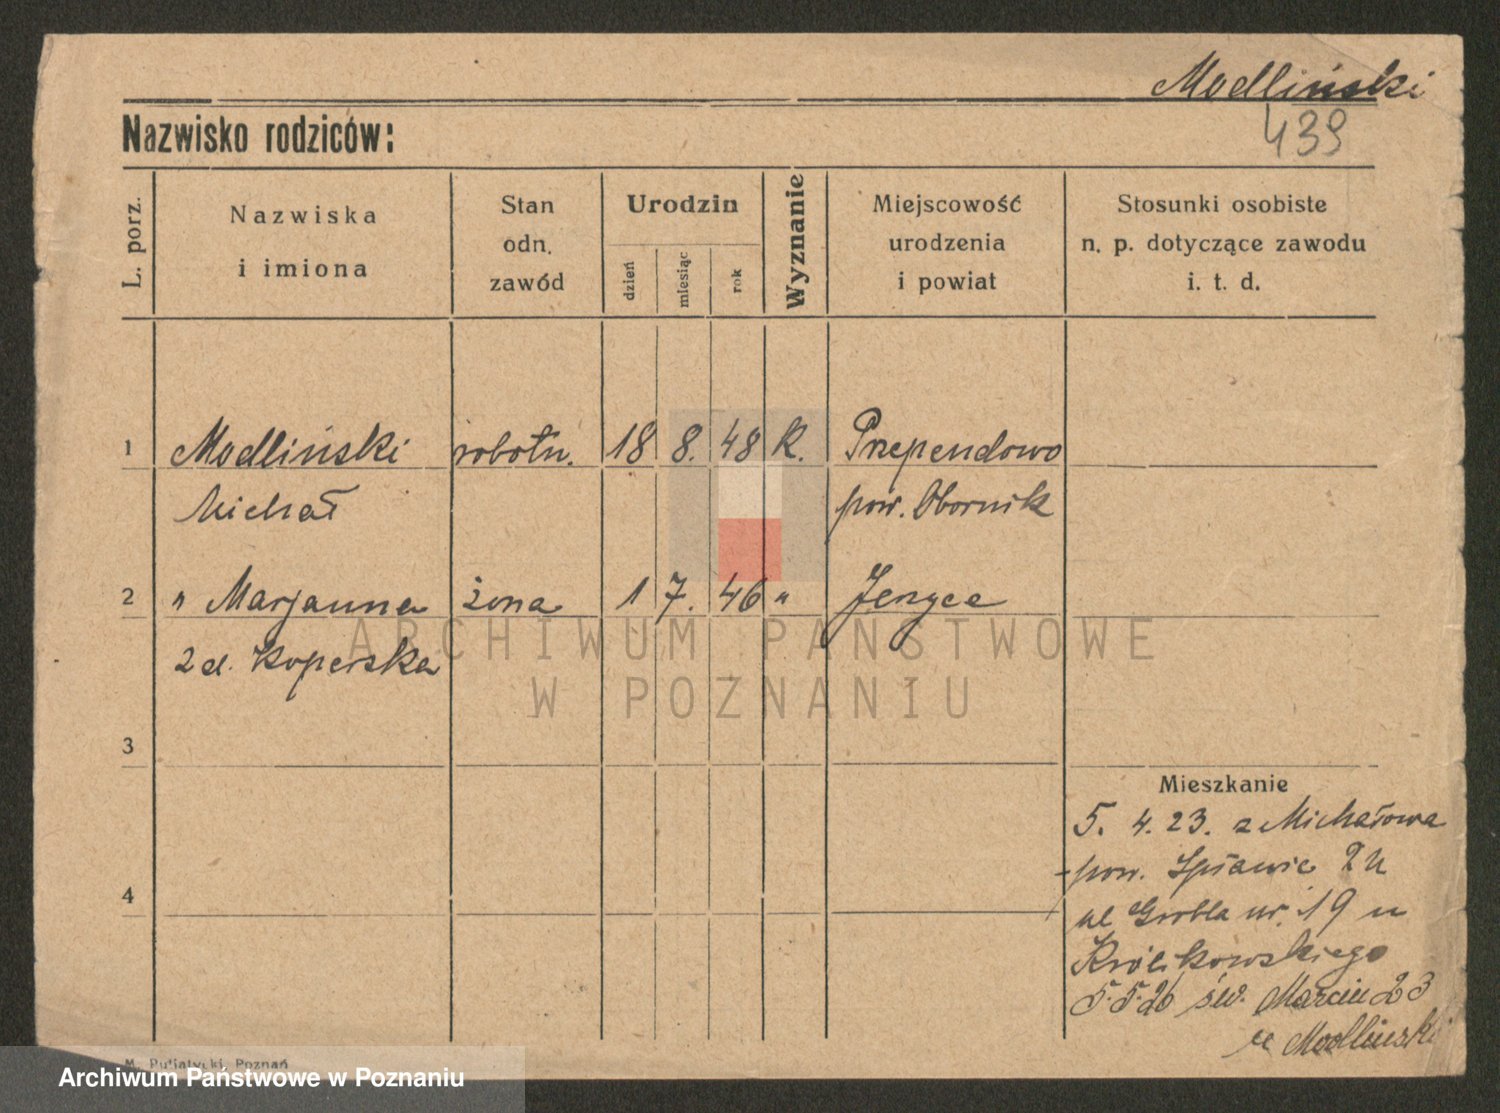 Modliński
439
Nazwisko rodziców:
L. porz.
Nazwiska
i imiona
Stan
odn.
zawód
Urodzin
dzień
miesiąc
rok
Wyznanie
Miejscowość
urodzenia
i powiat
Stosunki osobiste
n. p. dotyczące zawodu
i. t. d.
1 Modliński robotn. 18 8. 48 k. Przependowo
Michał pow. Obornik
2 " Marjanna żona 1 7. 46 " Jerzyce
zd. Koperska
ARCHIWUM PAŃSTWOWE
W POZNANIU
3
Mieszkanie
5. 4. 23. z Michałowa
pow.
4
ul Grobla nr. 19 u
Królikowskiego
5.5.26 św. Marcin 23
u Modlinski
M. Putiatycki, Poznań
Archiwum Państwowe w Poznaniu